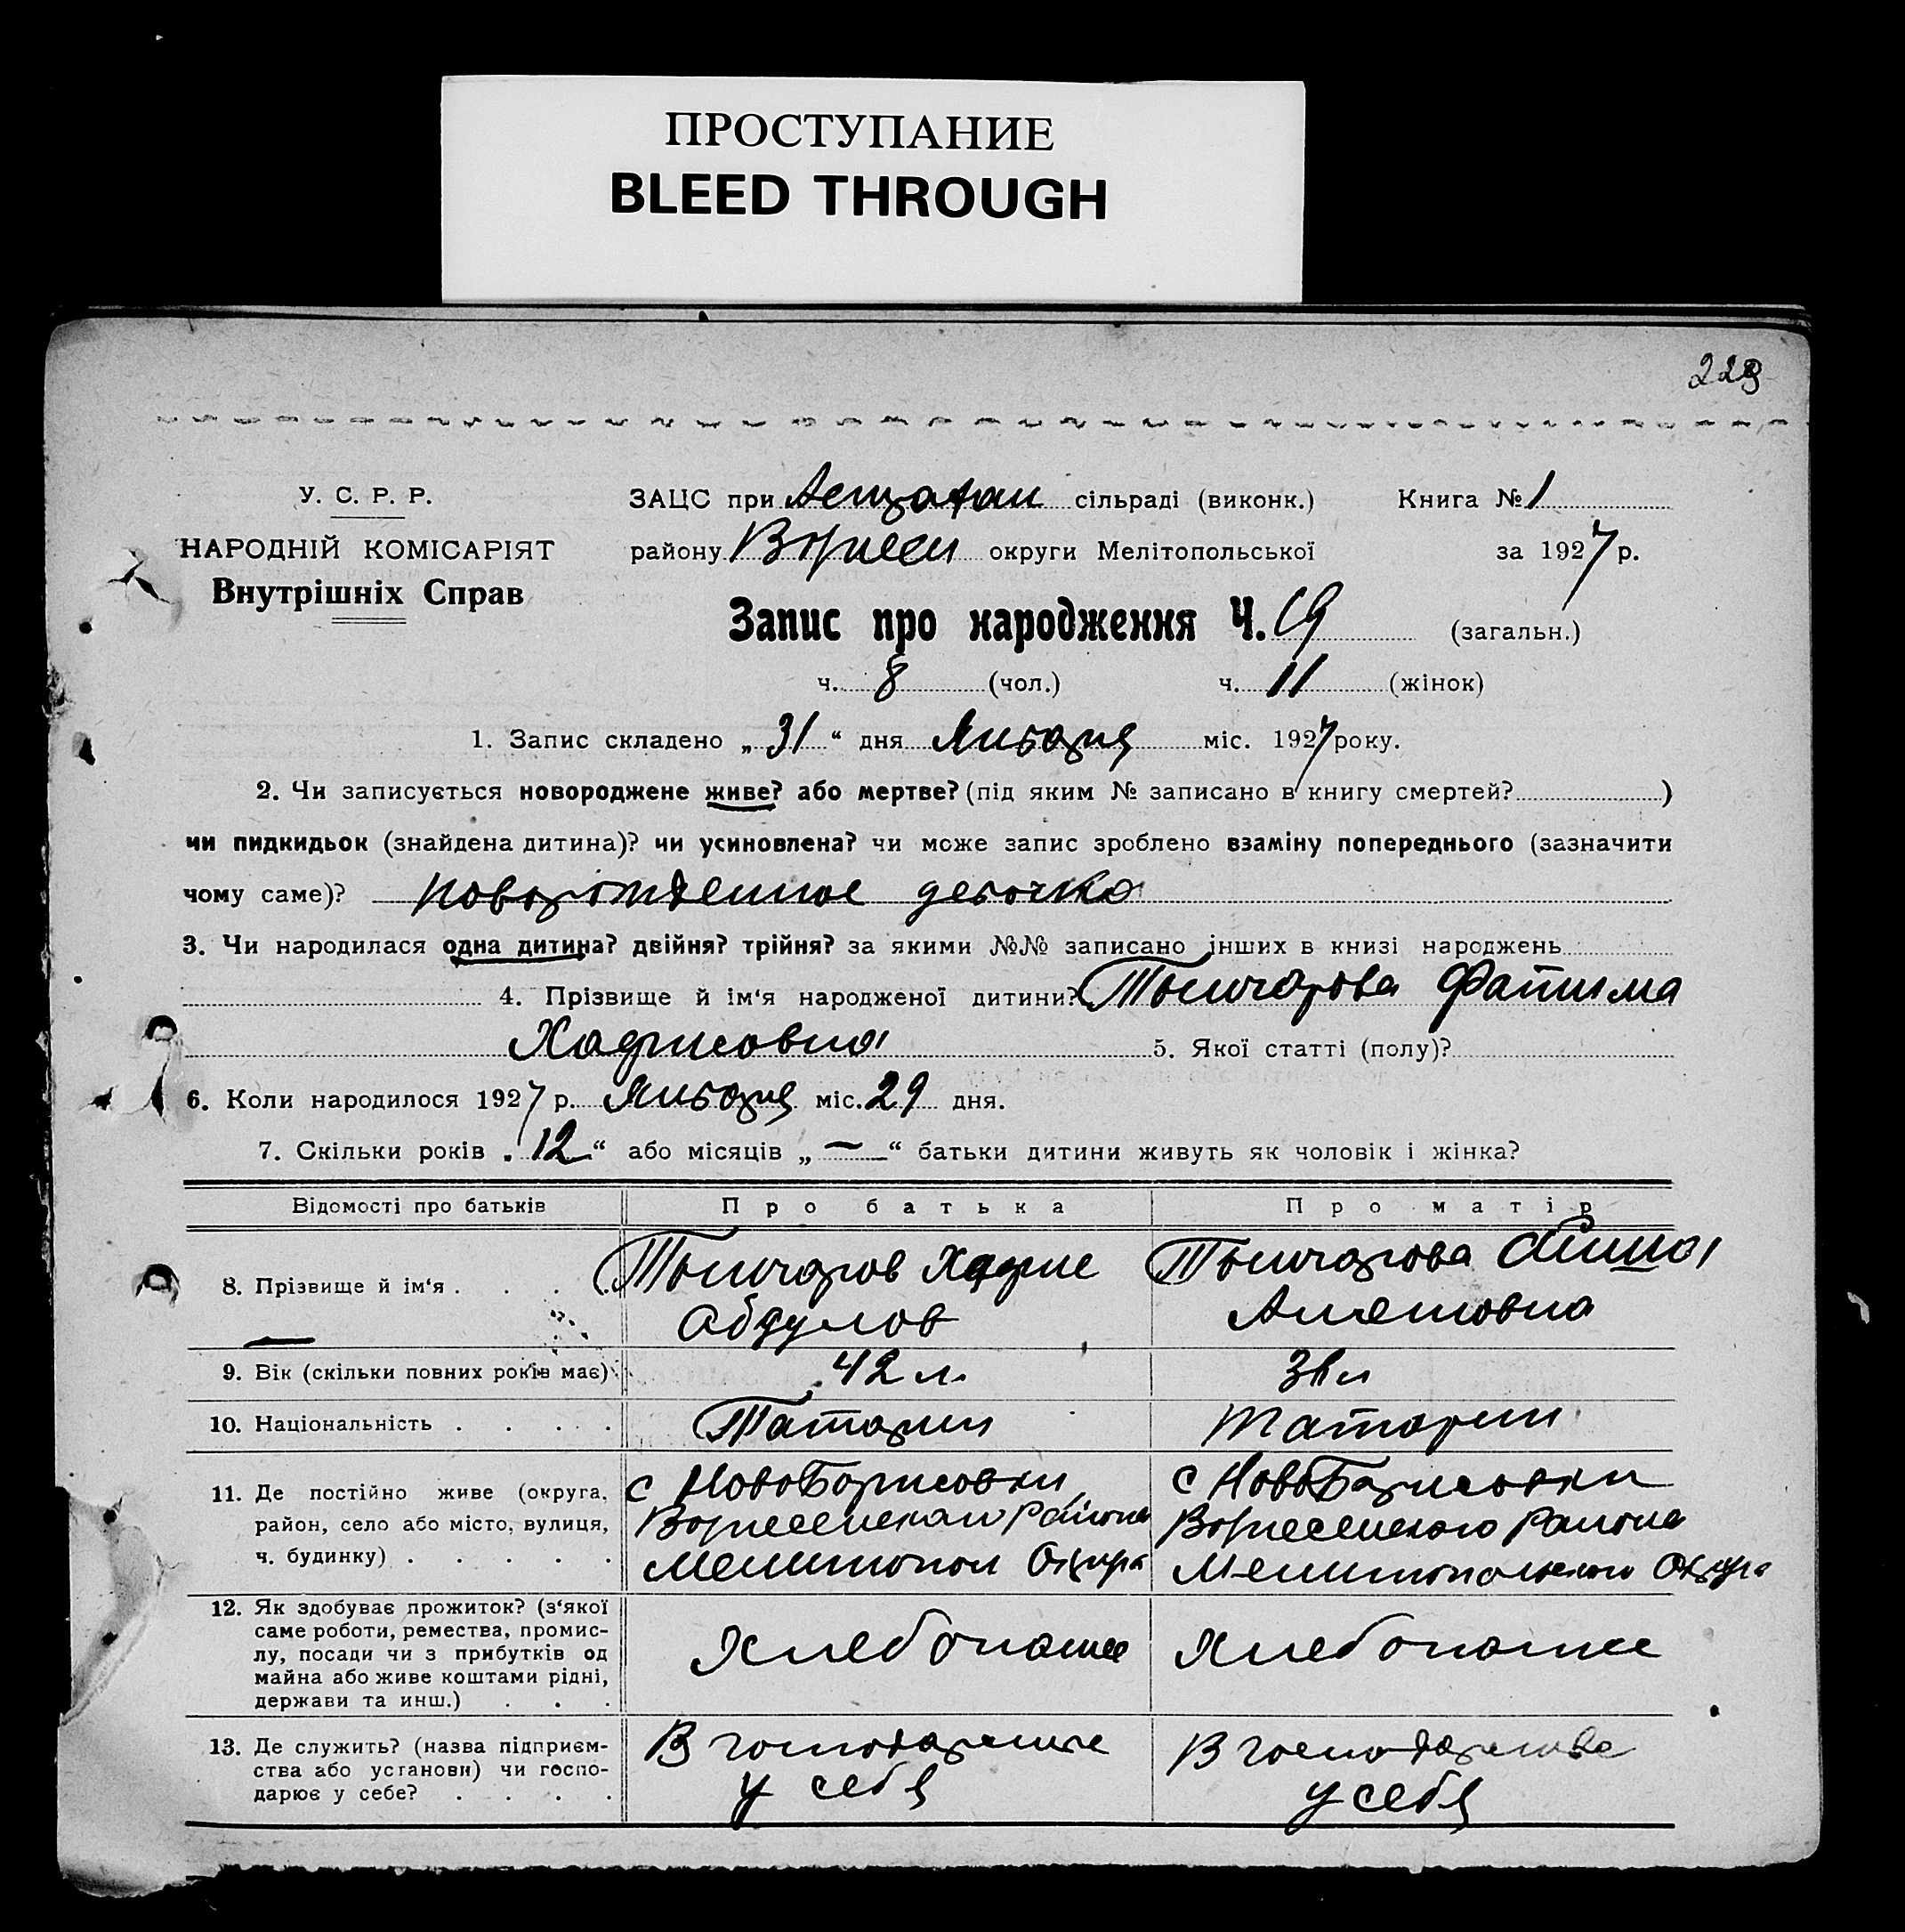 ПРОСТУПАНИЕ
BLEED THROUGH
228
У. С. Р. Р.
НАРОДНІЙ КОМІСАРІЯТ
Внутрішніх Справ
ЗАЦС при сільраді (виконк.) Книга № 1
району Вознесен округи Мелітопольської за 1927 р.
Запис про народження Ч. 19 (загальн.)
ч. 8 (чол.) ч. 11 (жінок)
1. Запис складено „31“ дня Января міс. 1927 року.
2. Чи записується новороджене живе? або мертве? (під яким № записано в книгу смертей? )
чи пидкидьок (знайдена дитина)? чи усиновлена? чи може запис зроблено взаміну попереднього (зазначити
чому саме)? новорожденное девочка
3. Чи народилася одна дитина? двійня? трійня? за якими №№ записано інших в книзі народжень
4. Прізвище й ім‘я народженої дитини? Фатима
5. Якої статті (полу)?
6. Коли народилося 1927 р. Января міс. 29 дня.
7. Скільки років „12“ або місяців „—“ батьки дитини живуть як чоловік і жінка?
Відомості про батьків Про батька Про матір
8. Прізвище й ім‘я . . . .
9. Вік (скільки повних років має) 42 л.
10. Національність . . . . Татарин Татарин
11. Де постійно живе (округа, с НовоБорисовки с НовоБорисовки
район, село або місто, вулиця, Вознесенского Района Вознесенского Района
ч. будинку) . . . . . Мелитопол Округа Мелитопольского Округа
12. Як здобуває прожиток? (з‘якої
саме роботи, ремества, промис-
лу, посади чи з прибутків од
майна або живе коштами рідні,
держави та инш.) . . .
Хлебопашес Хлебопашес
13. Де служить? (назва підприєм-
ства або установи) чи госпо-
дарює у себе? . . . .
В господарстве В господарстве
у себя у себя